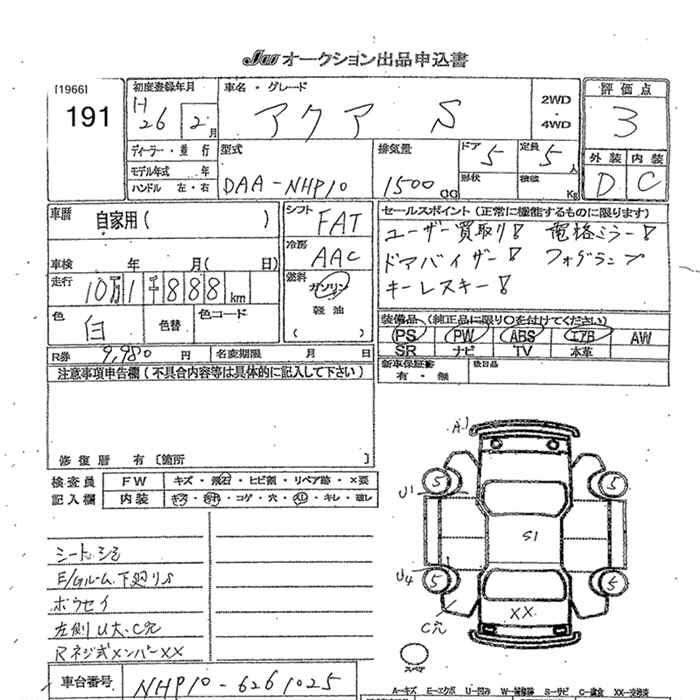 JW オークション出品申込書
[1966]
191
初度登録年月
H26 2月
車名・グレード
アクア S
2WD
4WD
評価点
3
外装 内装
D C
ディーラー・並行
モデル年式 年
ハンドル 左・右
型式
DAA-NHP10
排気量
1500 CC
ドア 5
形状
定員 5人
積載 Kg
車歴 自家用( )
車検 年 月( 日)
走行 10万1千888km
色 白
色替
色コード
シフト FAT
冷房 AAC
燃料 ガソリン
軽油
( )
セールスポイント(正常に機能するものに限ります)
ユーザー買取り! 電格ミラー!
ドアバイザー! フォグランプ
キーレスキー!
装備品(純正品に限り〇を付けてください)
PS PW ABS エアB AW
SR ナビ TV 本革
新車保証書 有・無
後日品
R券 9,980円
名変期限 月 日
注意事項申告欄(不具合内容等は具体的に記入して下さい)
修復歴 有〔箇所 〕
検査員記入欄
FW キズ・飛石・ヒビ割・リペア跡・×要
内装 キズ・汚れ・コゲ・穴・スレ・キレ・欠し
シートシミ
E/Gルーム下廻りS
ボウセイ
左側U大・C穴
Rネジ式メンバーXX
車台番号 NHP10-6261025
A1
5 5
U1
S1
U4
5 5
XX
C穴
スペアタイヤ
A−キズ E−エクボ U−凹み W−補修跡 S−サビ C−腐食 XX−交換済